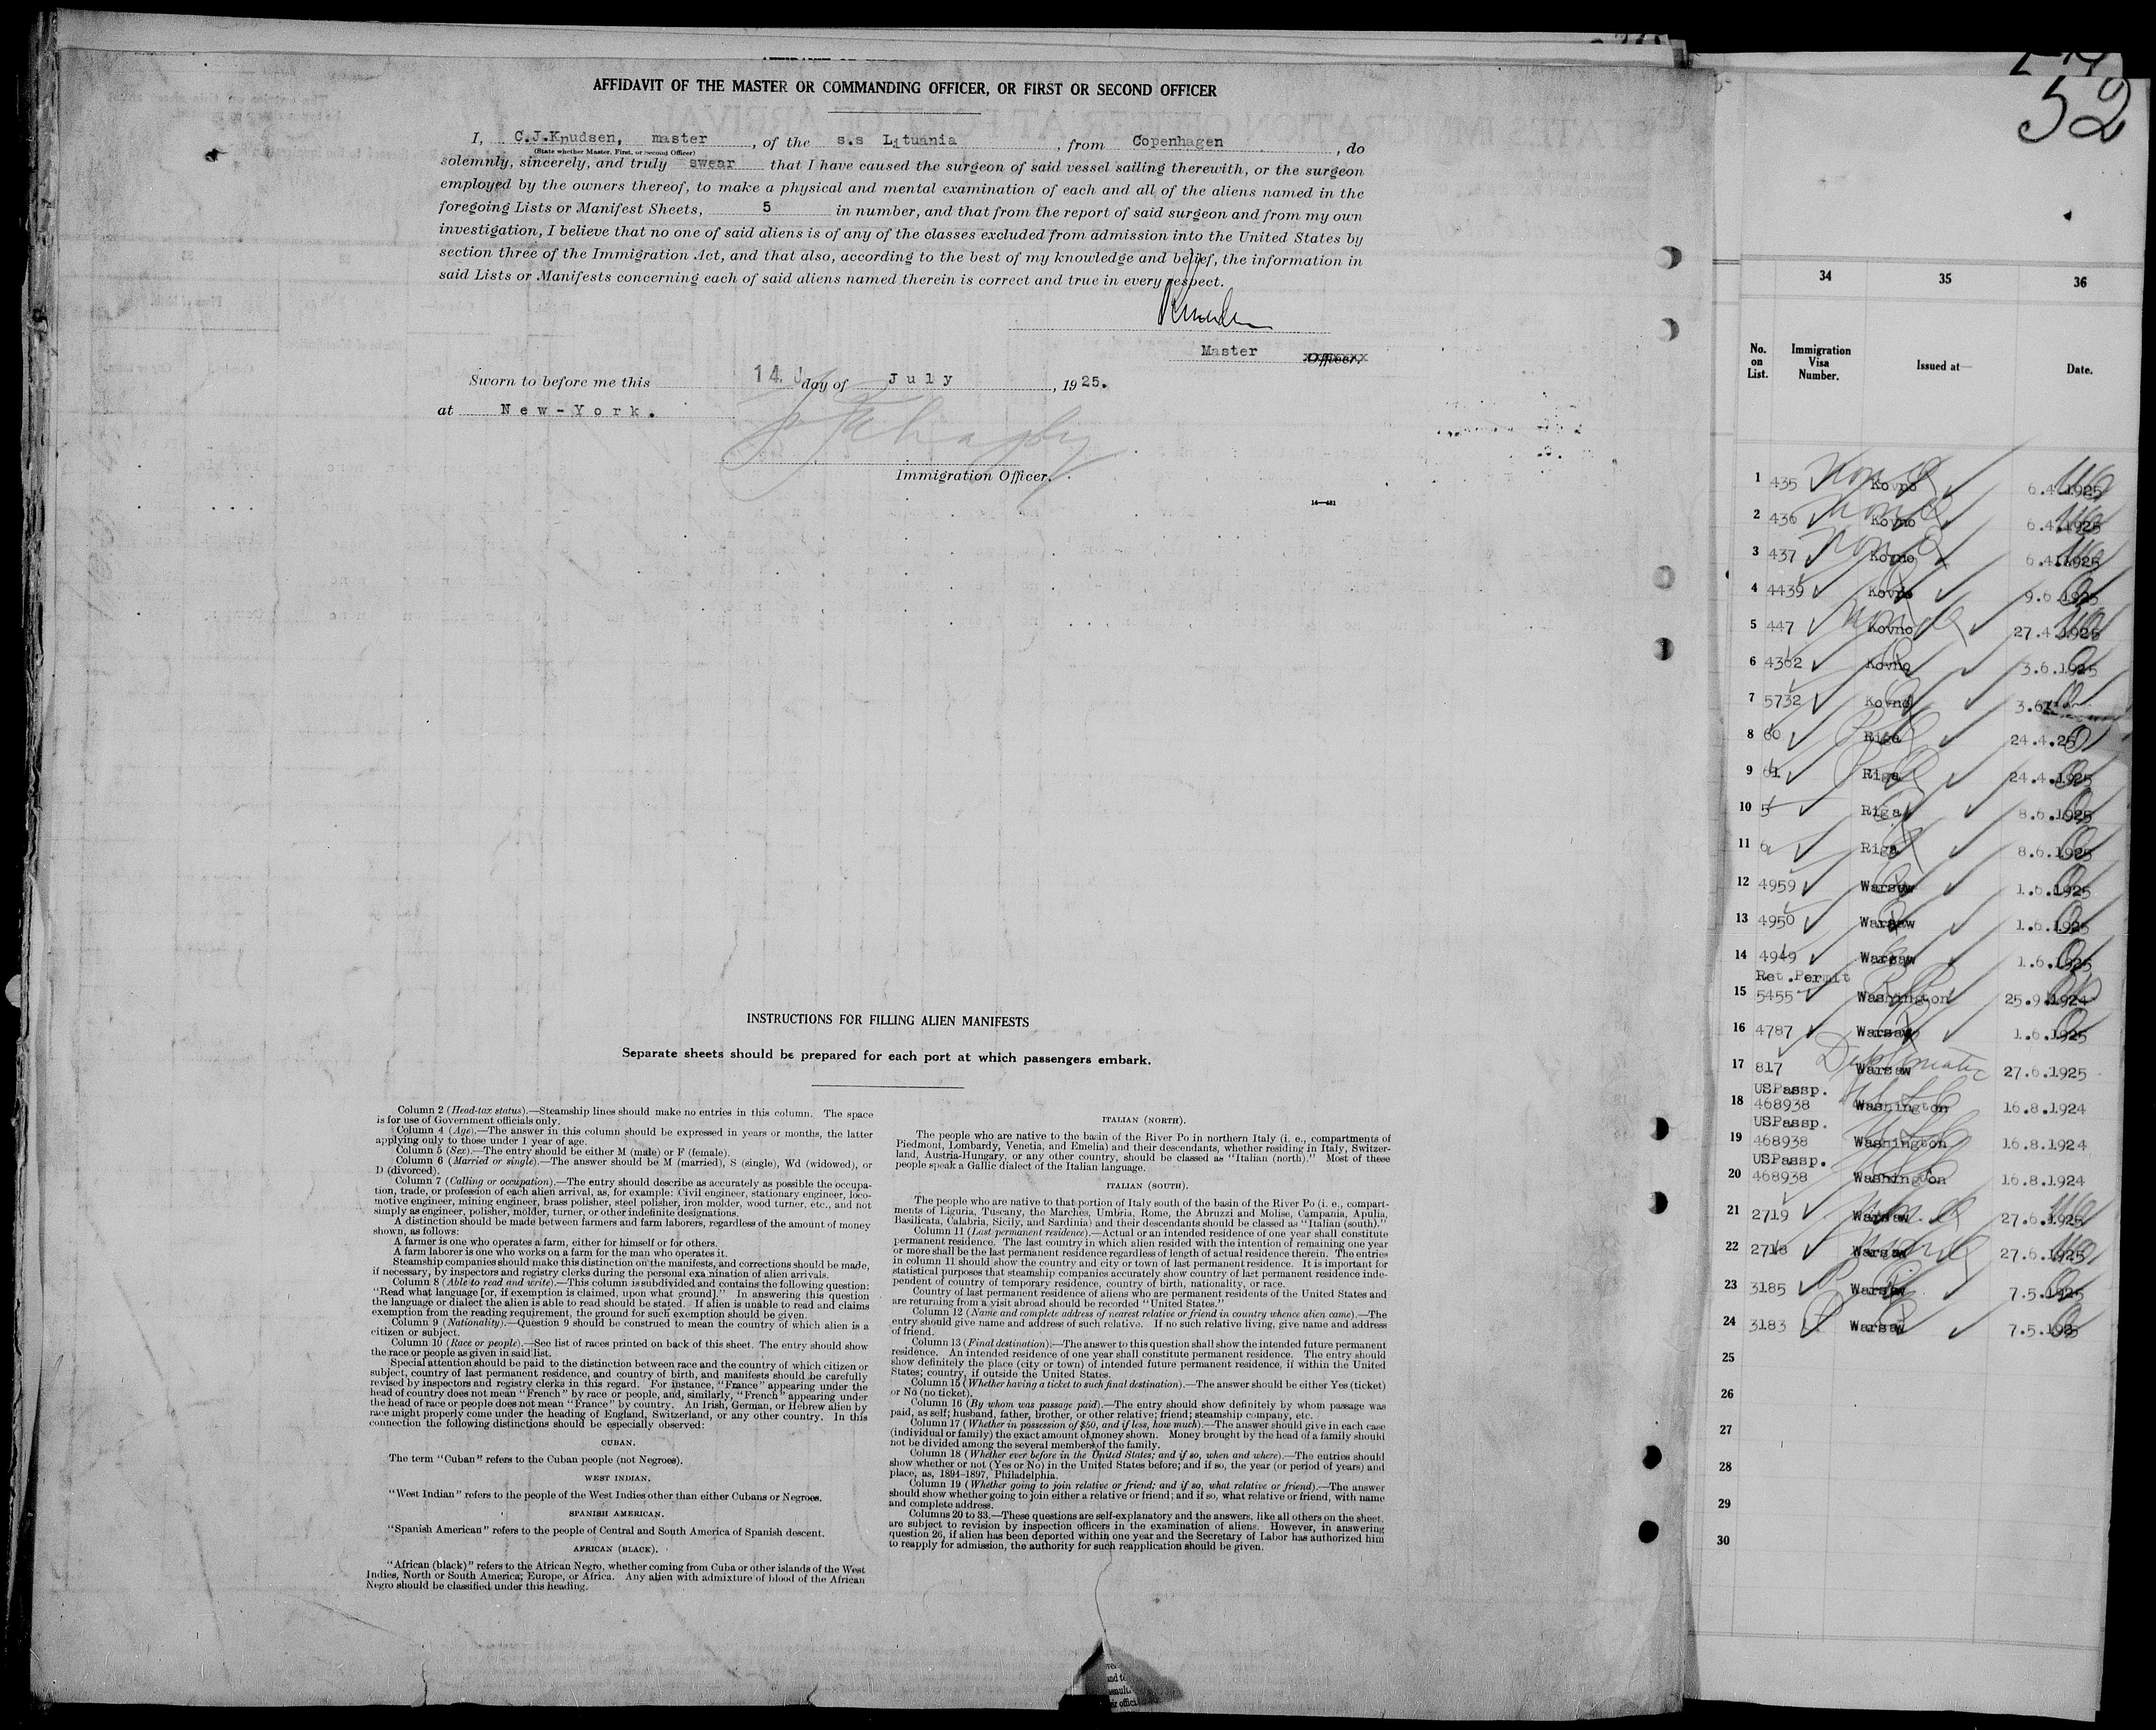 AFFIDAVIT OF THE MASTER OR COMMANDING OFFICER, OR FIRST OR SECOND OFFICER
I, C.J.Knudsen, master, of the s.s Lituania, from Copenhagen, do
(State whether Master, First, or Second Officer)
solemnly, sincerely, and truly swear that I have caused the surgeon of said vessel sailing therewith, or the surgeon
employed by the owners thereof, to make a physical and mental examination of each and all of the aliens named in the
foregoing Lists or Manifest Sheets, 5 in number, and that from the report of said surgeon and from my own
investigation, I believe that no one of said aliens is of any of the classes excluded from admission into the United States by
section three of the Immigration Act, and that also, according to the best of my knowledge and belief, the information in
said Lists or Manifests concerning each of said aliens named therein is correct and true in every respect.
Master Officer.
Sworn to before me this 14 day of July, 1925.
at New-York.
Immigration Officer.
14—481
INSTRUCTIONS FOR FILLING ALIEN MANIFESTS
Separate sheets should be prepared for each port at which passengers embark.
Column 2 (Head-tax status).—Steamship lines should make no entries in this column. The space
is for use of Government officials only.
Column 4 (Age).—The answer in this column should be expressed in years or months, the latter
applying only to those under 1 year of age.
Column 5 (Sex).—The entry should be either M (male) or F (female).
Column 6 (Married or single).—The answer should be M (married), S (single), Wd (widowed), or
D (divorced).
Column 7 (Calling or occupation).—The entry should describe as accurately as possible the occupa-
tion, trade, or profession of each alien arrival, as, for example: Civil engineer, stationary engineer, loco-
motive engineer, mining engineer, brass polisher, steel polisher, iron molder, wood turner, etc., and not
simply as engineer, polisher, molder, turner, or other indefinite designations.
A distinction should be made between farmers and farm laborers, regardless of the amount of money
shown, as follows:
A farmer is one who operates a farm, either for himself or for others.
A farm laborer is one who works on a farm for the man who operates it.
Steamship companies should make this distinction on the manifests, and corrections should be made,
if necessary, by inspectors and registry clerks during the personal examination of alien arrivals.
Column 8 (Able to read and write).—This column is subdivided and contains the following question:
"Read what language [or, if exemption is claimed, upon what ground]." In answering this question
the language or dialect the alien is able to read should be stated. If alien is unable to read and claims
exemption from the reading requirement, the ground for such exemption should be given.
Column 9 (Nationality).—Question 9 should be construed to mean the country of which alien is a
citizen or subject.
Column 10 (Race or people).—See list of races printed on back of this sheet. The entry should show
the race or people as given in said list.
Special attention should be paid to the distinction between race and the country of which citizen or
subject, country of last permanent residence, and country of birth, and manifests should be carefully
revised by inspectors and registry clerks in this regard. For instance, "France" appearing under the
head of country does not mean "French" by race or people, and, similarly, "French" appearing under
the head of race or people does not mean "France" by country. An Irish, German, or Hebrew alien by
race might properly come under the heading of England, Switzerland, or any other country. In this
connection the following distinctions should be especially observed:
CUBAN.
The term "Cuban" refers to the Cuban people (not Negroes).
WEST INDIAN.
"West Indian" refers to the people of the West Indies other than either Cubans or Negroes.
SPANISH AMERICAN.
"Spanish American" refers to the people of Central and South America of Spanish descent.
AFRICAN (BLACK).
"African (black)" refers to the African Negro, whether coming from Cuba or other islands of the West
Indies, North or South America, Europe, or Africa. Any alien with admixture of blood of the African
Negro should be classified under this heading.
ITALIAN (NORTH).
The people who are native to the basin of the River Po in northern Italy (i. e., compartments of
Piedmont, Lombardy, Venetia, and Emelia) and their descendants, whether residing in Italy, Switzer-
land, Austria-Hungary, or any other country, should be classed as "Italian (north)." Most of these
people speak a Gallic dialect of the Italian language.
ITALIAN (SOUTH).
The people who are native to that portion of Italy south of the basin of the River Po (i. e., compart-
ments of Liguria, Tuscany, the Marches, Umbria, Rome, the Abruzzi and Molise, Campania, Apulia,
Basilicata, Calabria, Sicily, and Sardinia) and their descendants should be classed as "Italian (south)."
Column 11 (Last permanent residence).—Actual or an intended residence of one year shall constitute
permanent residence. The last country in which alien resided with the intention of remaining one year
or more shall be the last permanent residence regardless of length of actual residence therein. The entries
in column 11 should show the country and city or town of last permanent residence. It is important for
statistical purposes that steamship companies accurately show country of last permanent residence inde-
pendent of country of temporary residence, country of birth, nationality, or race.
Country of last permanent residence of aliens who are permanent residents of the United States and
are returning from a visit abroad should be recorded "United States."
Column 12 (Name and complete address of nearest relative or friend in country whence alien came).—The
entry should give name and address of such relative. If no such relative living, give name and address
of friend.
Column 13 (Final destination).—The answer to this question shall show the intended future permanent
residence. An intended residence of one year shall constitute permanent residence. The entry should
show definitely the place (city or town) of intended future permanent residence, if within the United
States; country, if outside the United States.
Column 15 (Whether having a ticket to such final destination).—The answer should be either Yes (ticket)
or No (no ticket).
Column 16 (By whom was passage paid).—The entry should show definitely by whom passage was
paid, as self; husband, father, brother, or other relative; friend; steamship company, etc.
Column 17 (Whether in possession of $50, and if less, how much).—The answer should give in each case
(individual or family) the exact amount of money shown. Money brought by the head of a family should
not be divided among the several members of the family.
Column 18 (Whether ever before in the United States; and if so, when and where).—The entries should
show whether or not (Yes or No) in the United States before; and if so, the year (or period of years) and
place, as, 1894–1897, Philadelphia.
Column 19 (Whether going to join relative or friend; and if so, what relative or friend).—The answer
should show whether going to join either a relative or friend; and if so, what relative or friend, with name
and complete address.
Columns 20 to 33.—These questions are self-explanatory and the answers, like all others on the sheet,
are subject to revision by inspection officers in the examination of aliens. However, in answering
question 26, if alien has been deported within one year and the Secretary of Labor has authorized him
to reapply for admission, the authority for such reapplication should be given.
52
34 35 36
No. on List. Immigration Visa Number. Issued at— Date.
1 435 Kovno 6.4.1925
2 436 Kovno 6.4.1925
3 437 Kovno 6.4.1925
4 4439 Kovno 9.6.1925
5 447 Kovno 27.4.1925
6 4362 Kovno 3.6.1925
7 5732 Kovno 3.6
8 60 Riga 24.4.25
9 61 Riga 24.4.1925
10 5 Riga 8.6.1925
11 6 Riga 8.6.1925
12 4959 Warsaw 1.6.1925
13 4950 Warsaw 1.6.1925
14 4949 Warsaw 1.6.1925
Ret.Permit
15 5455 Washington 25.9.1924
16 4787 Warsaw 1.6.1925
17 817 Diplomatic Warsaw 27.6.1925
USPassp.
18 468938 Washington 16.8.1924
USPassp.
19 468938 Washington 16.8.1924
USPassp.
20 468938 Washington 16.8.1924
21 2719 Warsaw 27.6.1925
22 2718 Warsaw 27.6.1925
23 3185 Warsaw 7.5.1925
24 3183 Warsaw 7.5.1925
25
26
27
28
29
30